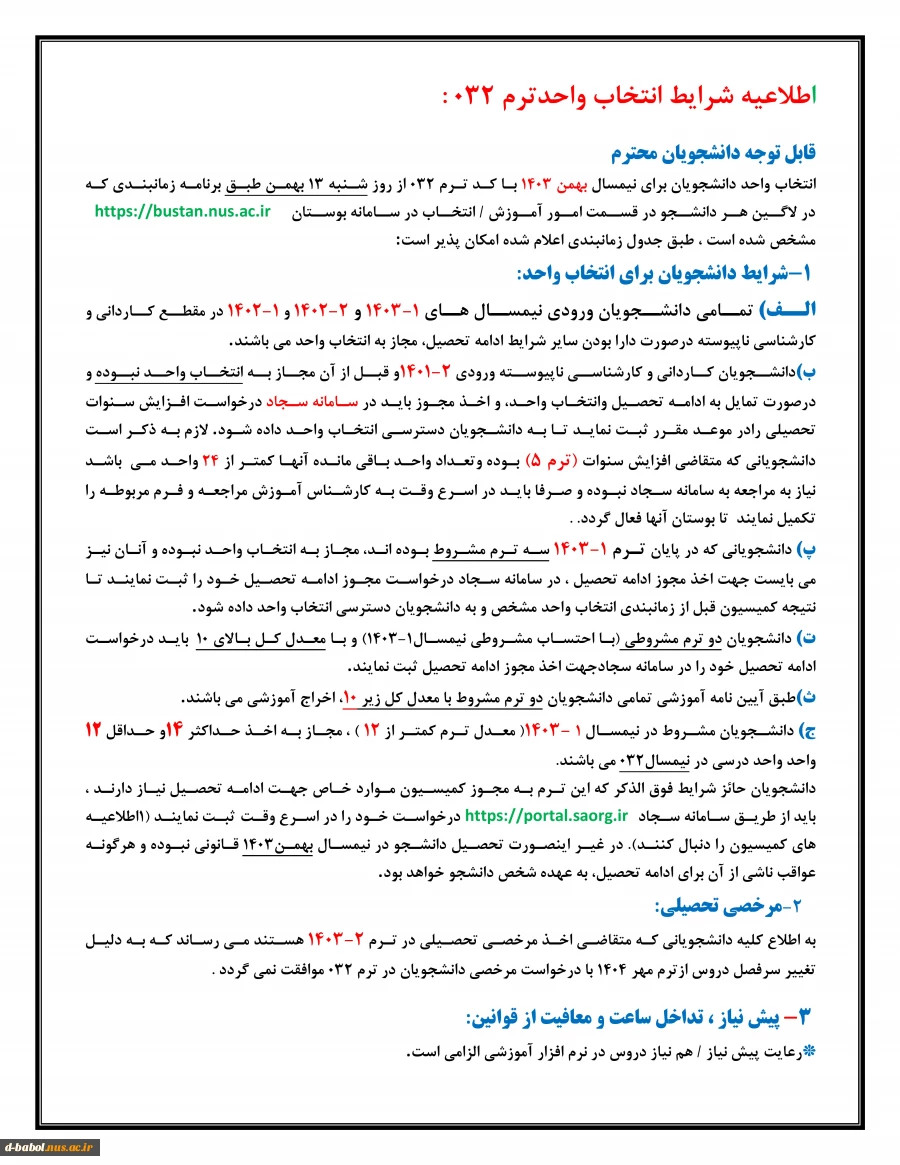 اطلاعیه شرایط انتخاب واحدترم ۰۳۲ :
قابل توجه دانشجویان محترم
انتخاب واحد دانشجویان برای نیمسال بهمن ۱۴۰۳ با کد ترم ۰۳۲ از روز شنبه ۱۳ بهمن طبق برنامه زمانبندی که
در لاگین هر دانشجو در قسمت امور آموزش / انتخاب در سامانه بوستان https://bustan.nus.ac.ir
مشخص شده است ، طبق جدول زمانبندی اعلام شده امکان پذیر است:
۱-شرایط دانشجویان برای انتخاب واحد:
الف) تمامی دانشجویان ورودی نیمسال های ۱-۱۴۰۳ و ۲-۱۴۰۲ و ۱-۱۴۰۲ در مقطع کاردانی و
کارشناسی ناپیوسته درصورت دارا بودن سایر شرایط ادامه تحصیل، مجاز به انتخاب واحد می باشند.
ب)دانشجویان کاردانی و کارشناسی ناپیوسته ورودی ۲-۱۴۰۱و قبل از آن مجاز به انتخاب واحد نبوده و
درصورت تمایل به ادامه تحصیل وانتخاب واحد، و اخذ مجوز باید در سامانه سجاد درخواست افزایش سنوات
تحصیلی رادر موعد مقرر ثبت نماید تا به دانشجویان دسترسی انتخاب واحد داده شود. لازم به ذکر است
دانشجویانی که متقاضی افزایش سنوات (ترم ۵) بوده وتعداد واحد باقی مانده آنها کمتر از ۲۴ واحد می باشد
نیاز به مراجعه به سامانه سجاد نبوده و صرفا باید در اسرع وقت به کارشناس آموزش مراجعه و فرم مربوطه را
تکمیل نمایند تا بوستان آنها فعال گردد. .
پ) دانشجویانی که در پایان ترم ۱-۱۴۰۳ سه ترم مشروط بوده اند، مجاز به انتخاب واحد نبوده و آنان نیز
می بایست جهت اخذ مجوز ادامه تحصیل ، در سامانه سجاد درخواست مجوز ادامه تحصیل خود را ثبت نمایند تا
نتیجه کمیسیون قبل از زمانبندی انتخاب واحد مشخص و به دانشجویان دسترسی انتخاب واحد داده شود.
ت) دانشجویان دو ترم مشروطی (با احتساب مشروطی نیمسال۱-۱۴۰۳) و با معدل کل بالای ۱۰ باید درخواست
ادامه تحصیل خود را در سامانه سجادجهت اخذ مجوز ادامه تحصیل ثبت نمایند.
ث)طبق آیین نامه آموزشی تمامی دانشجویان دو ترم مشروط با معدل کل زیر ۱۰، اخراج آموزشی می باشند.
ج) دانشجویان مشروط در نیمسال ۱ -۱۴۰۳( معدل ترم کمتر از ۱۲ ) ، مجاز به اخذ حداکثر ۱۴و حداقل ۱۲
واحد واحد درسی در نیمسال۰۳۲ می باشند.
دانشجویان حائز شرایط فوق الذکر که این ترم به مجوز کمیسیون موارد خاص جهت ادامه تحصیل نیاز دارند ،
باید از طریق سامانه سجاد https://portal.saorg.ir درخواست خود را در اسرع وقت ثبت نمایند (۱اطلاعیه
های کمیسیون را دنبال کنند). در غیر اینصورت تحصیل دانشجو در نیمسال بهمن۱۴۰۳ قانونی نبوده و هرگونه
عواقب ناشی از آن برای ادامه تحصیل، به عهده شخص دانشجو خواهد بود.
۲-مرخصی تحصیلی:
به اطلاع کلیه دانشجویانی که متقاضی اخذ مرخصی تحصیلی در ترم ۲-۱۴۰۳ هستند می رساند که به دلیل
تغییر سرفصل دروس ازترم مهر ۱۴۰۴ با درخواست مرخصی دانشجویان در ترم ۰۳۲ موافقت نمی گردد .
۳- پیش نیاز ، تداخل ساعت و معافیت از قوانین:
❊رعایت پیش نیاز / هم نیاز دروس در نرم افزار آموزشی الزامی است.
d-babol.nus.ac.ir